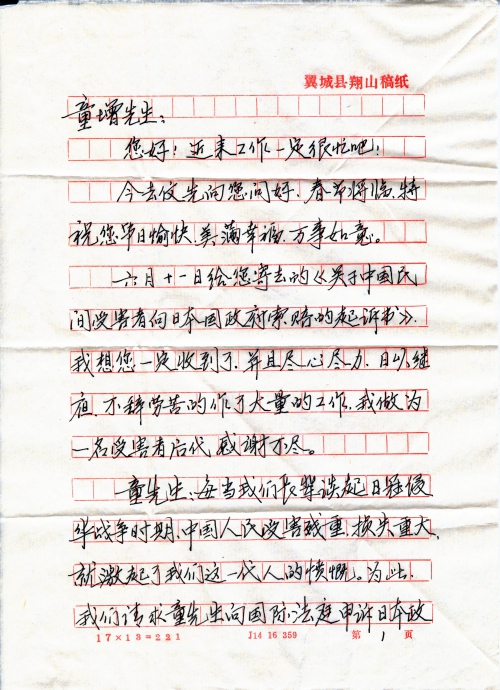 翼城县翔山稿纸
童增先生：
您好！近来工作一定很忙吧！
今去仅先向您问好，春节将临，特
祝您节日愉快，美满幸福，万事如意。
六月十一日给您寄去的《关于中国民
间受害者向日本国政府索赔的起诉书》，
我想您一定收到了，并且尽心尽力，日以继
夜，不辞劳苦的作了大量的工作，我做为
一名受害者后代，感谢不尽。
童先生：每当我们长辈谈起日寇侵
华战争时期，中国人民受害残重，损失重大，
就激起了我们这一代人的愤慨。为此，
我们请求童先生向国际法庭申诉日本政
17×13=221 J14 16 359 第1页